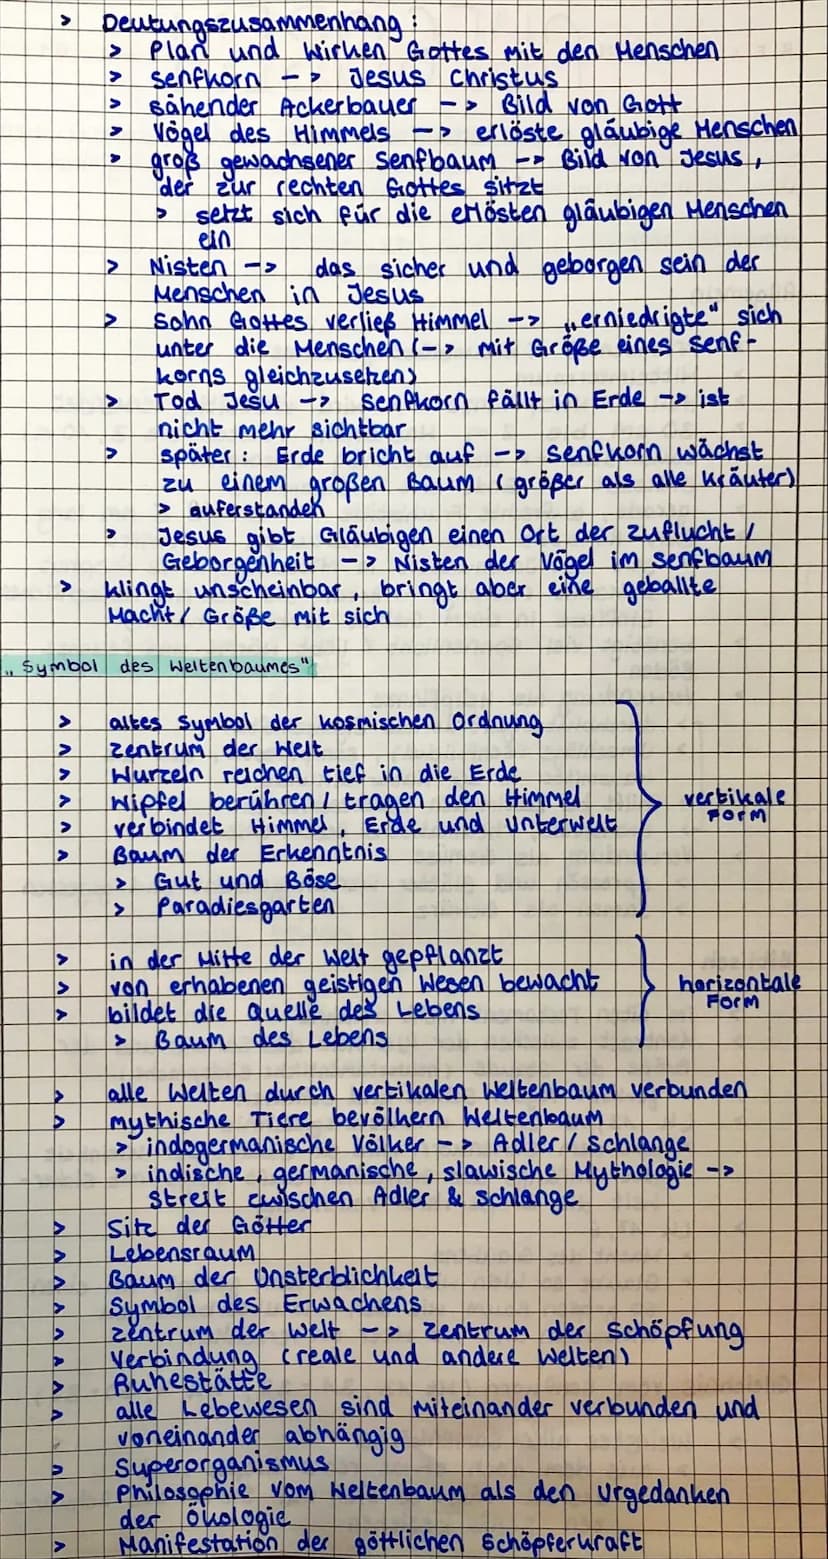 > Deutungszusammenhang :
> Plan und Wirken Gottes mit den Menschen
> Senfkorn --> Jesus Christus
> sähender Ackerbauer --> Bild von Gott
> Vögel des Himmels --> erlöste gläubige Menschen
> groß gewachsener Senfbaum --> Bild von Jesus,
der zur rechten Gottes sitzt
> setzt sich für die erlösten gläubigen Menschen
ein
> Nisten --> das sicher und geborgen sein der
Menschen in Jesus
> Sohn Gottes verließ Himmel --> „erniedrigte" sich
unter die Menschen (--> mit Größe eines Senf-
korns gleichzusetzen)
> Tod Jesu --> Senfkorn fällt in Erde --> ist
nicht mehr sichtbar
> später: Erde bricht auf --> Senfkorn wächst
zu einem großen Baum (größer als alle Kräuter)
> auferstanden
> Jesus gibt Gläubigen einen Ort der Zuflucht /
Geborgenheit --> Nisten der Vögel im Senfbaum
> klingt unscheinbar, bringt aber eine geballte
Macht / Größe mit sich
„Symbol des Weltenbaumes"
> altes Symbol der kosmischen Ordnung
> Zentrum der Welt
> Wurzeln reichen tief in die Erde
> Wipfel berühren / tragen den Himmel
vertikale
> verbindet Himmel, Erde und Unterwelt
Form
> Baum der Erkenntnis
> Gut und Böse
> Paradiesgarten
> in der Mitte der Welt gepflanzt
> von erhabenen geistigen Wesen bewacht
horizontale
> bildet die Quelle des Lebens
Form
> Baum des Lebens
> alle Welten durch vertikalen Weltenbaum verbunden
> mythische Tiere bevölkern Weltenbaum
> indogermanische Völker --> Adler / Schlange
> indische, germanische, slawische Mythologie -->
Streit zwischen Adler & Schlange
> Sitz der Götter
> Lebensraum
> Baum der Unsterblichkeit
> Symbol des Erwachens
> Zentrum der Welt --> Zentrum der Schöpfung
> Verbindung (reale und andere Welten)
> Ruhestätte
> alle Lebewesen sind miteinander verbunden und
voneinander abhängig
> Superorganismus
> Philosophie vom Weltenbaum als den Urgedanken
der Ökologie
> Manifestation der göttlichen Schöpferkraft